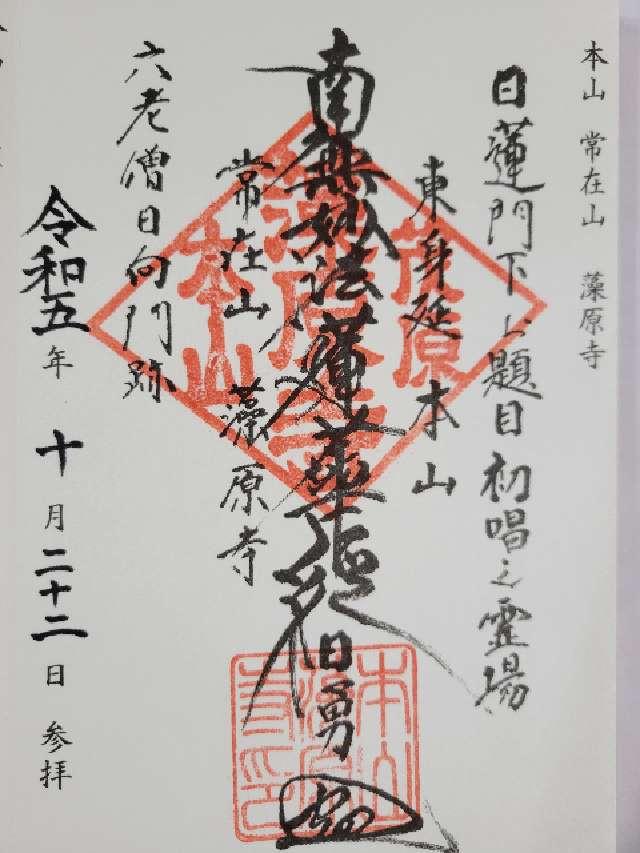 本山 常在山 藻原寺
日蓮門下お題目初唱之霊場
東身延 本山
南無妙法蓮華経
日勇
常在山 藻原寺
六老僧日向門跡
令和五年 十月二十二日 参拝
茂原
藻原寺
本山
本山
藻原
寺印